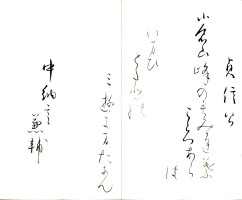 貞信公
小倉山峰のもみち葉
こゝろあら
は
いまひ
とたひの
みゆきまたなん
中納言
兼輔